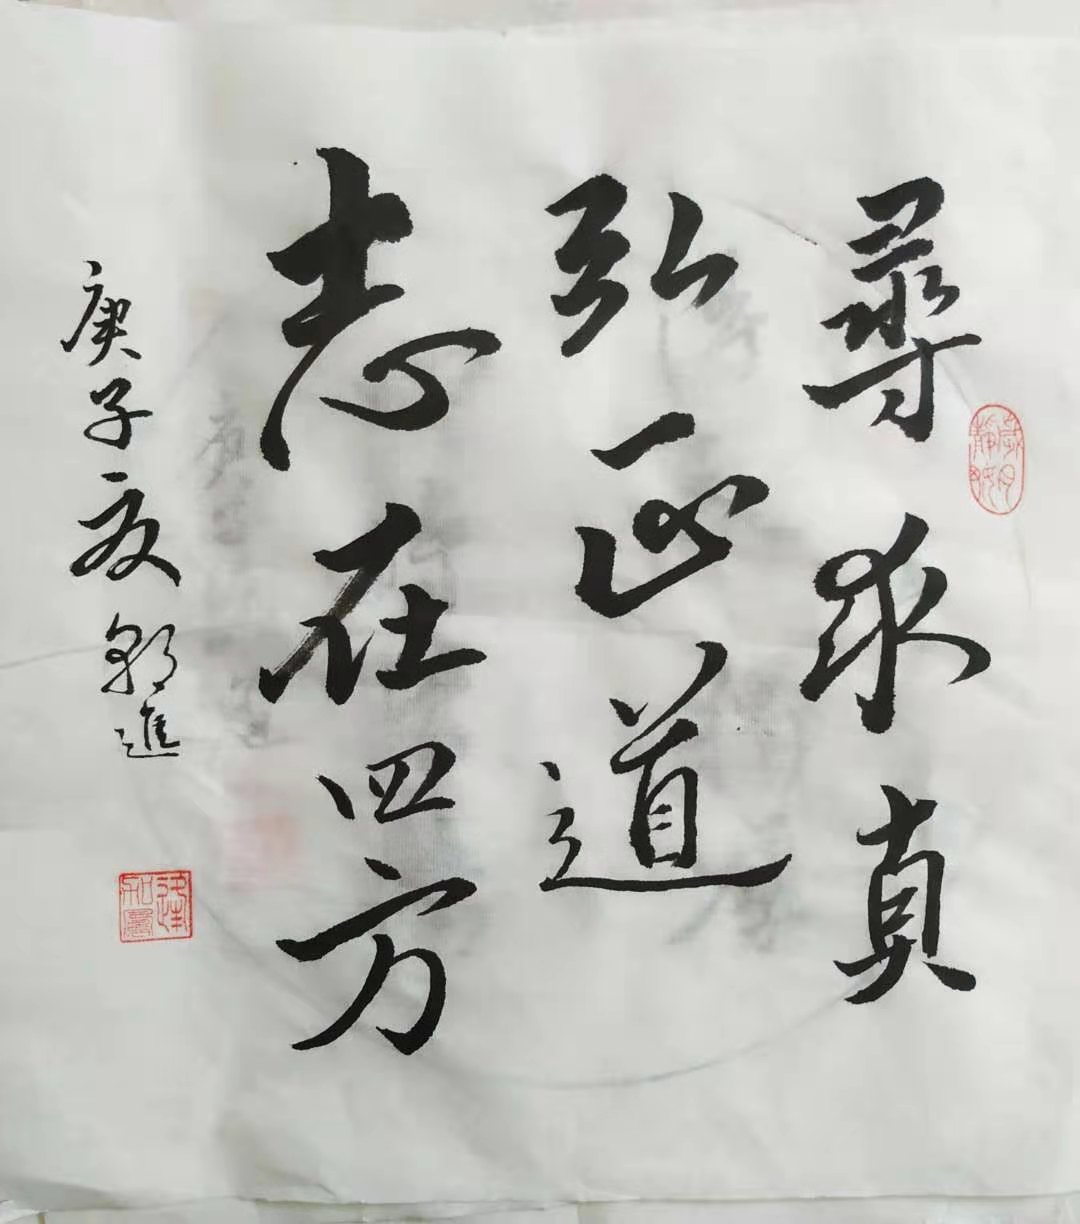 尋求真
弘正道
志在四方
庚子夏 進